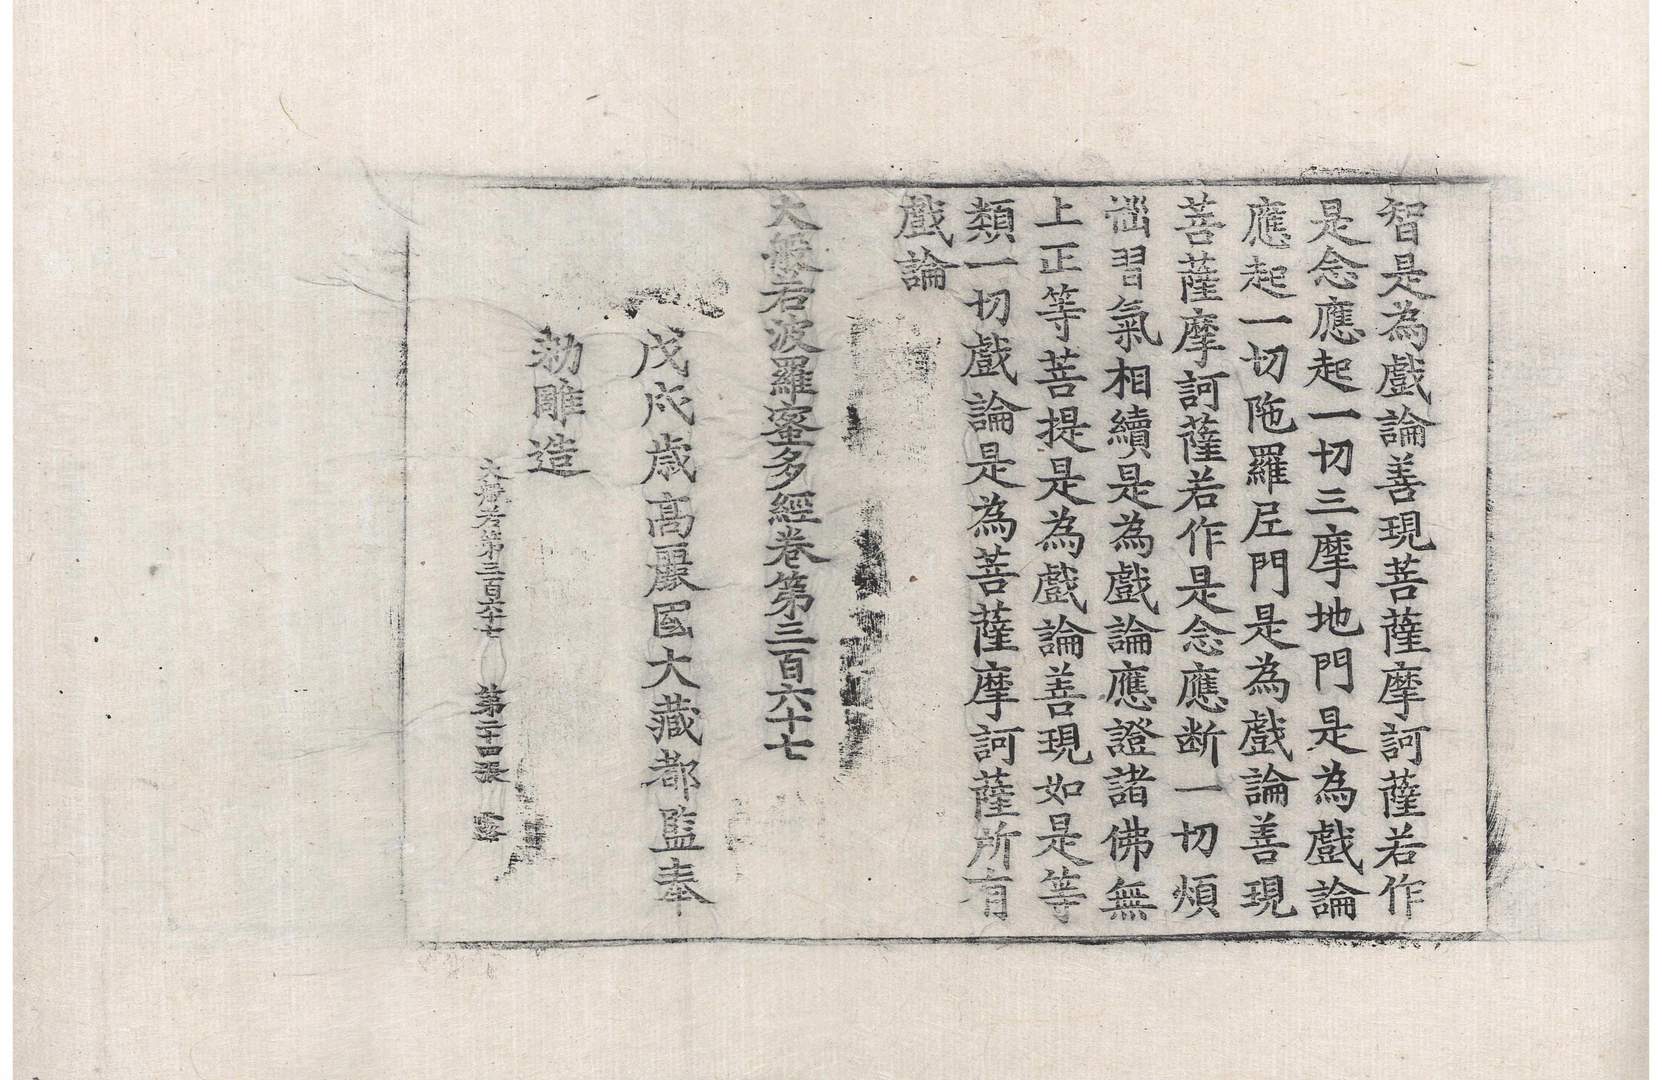 智是為戲論善現菩薩摩訶薩若作
是念應起一切三摩地門是為戲論
應起一切陁羅尼門是為戲論善現
菩薩摩訶薩若作是念應断一切煩
惱習氣相續是為戲論應證諸佛無
上正等菩提是為戲論善現如是等
類一切戲論是為菩薩摩訶薩所有
戲論
大般若波羅蜜多經卷第三百六十七
戊戌歳高麗國大藏都監奉
勑雕造
大般若第三百六十七 第二十四張